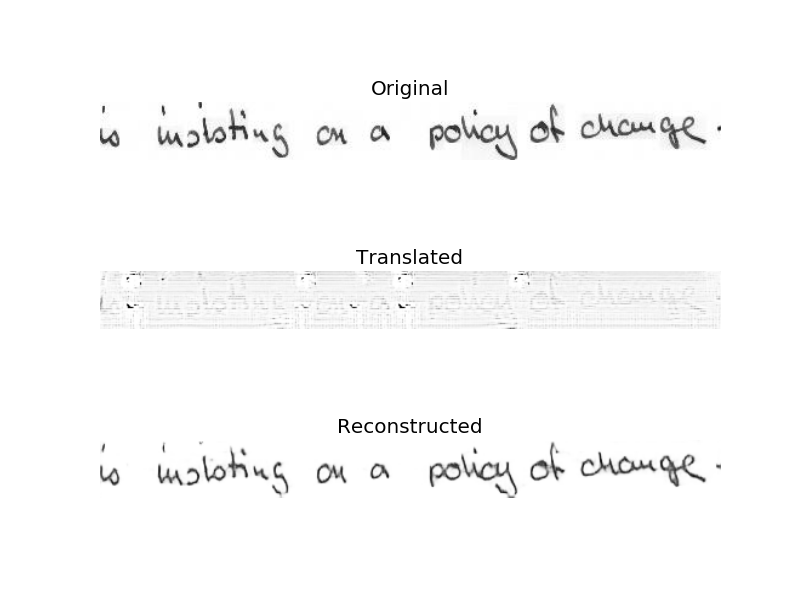 Original
is insisting on a policy of change .
Translated
is insisting on a policy of change
Reconstructed
is insisting on a policy of change .